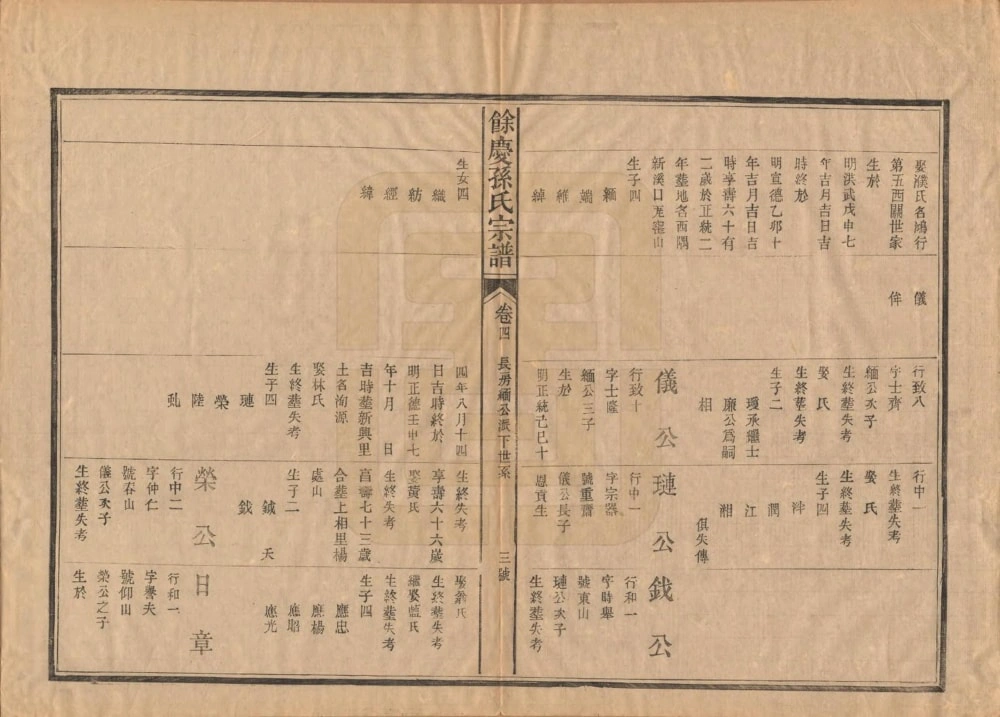 娶濮氏名鴻行
第五西關世家
生於
明洪武戊申七
年吉月吉日吉
時終於
明宣德乙卯十
年吉月吉日吉
時享壽六十有
二歲於正統二
年塟地名西隅
新溪口瓦窰山
生子四
緬
端
維
綽
儀
侔
行致八
字士齊
緬公次子
生終塟失考
娶 氏
生終塟失考
生子二
璦承璡士
廉公爲嗣
相
儀公
行致十
字士隆
緬公三子
生於
明正統己巳十
行中一
生終塟失考
娶 氏
生終塟失考
生子四
洋
潤
江
湘
俱失傳
璉公
行中一
字宗器
號重齋
儀公長子
恩貢生
鉞公
行和一
字時舉
號東山
璉公次子
生終塟失考
餘慶孫氏宗譜
卷四
長房緬公派下世系
三號
生女四
織
紡
經
緯
四年八月十四
日吉時終於
明正德壬申七
年十月 日
吉時塟新興里
土名洵源
娶林氏
生終塟失考
生子四
璉
榮
陸
虬
生終失考
享壽六十六歲
娶黃氏
生終失考
享壽七十三歲
合塟上相里楊
處山
生子二
鉞 夭
鉞
榮公
行中二
字仲仁
號春山
儀公次子
生終塟失考
娶翁氏
生終塟失考
繼娶藍氏
生終塟失考
生子四
應忠
應楊
應昭
應光
日章
行和一
字譽夫
號仰山
榮公之子
生於